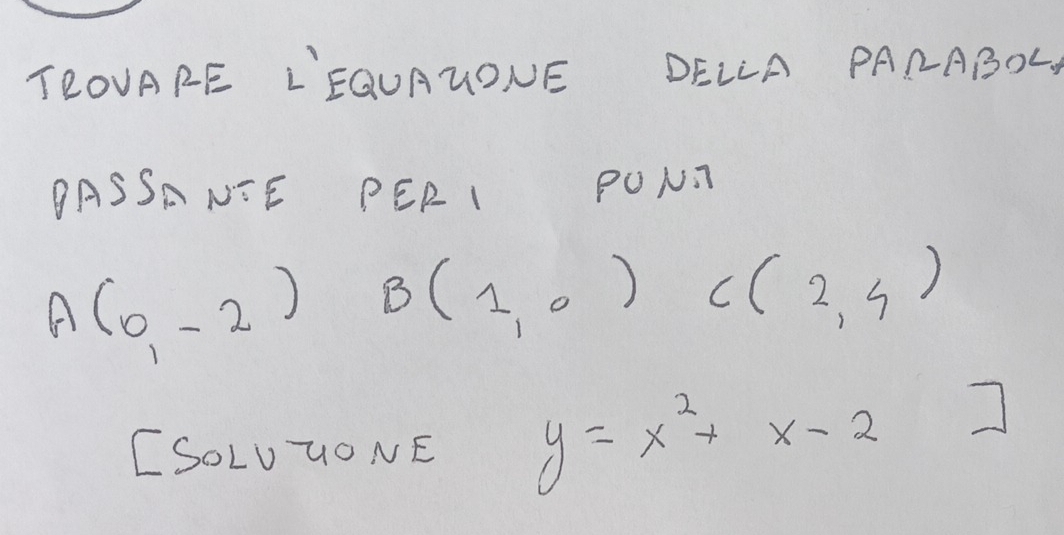 TROVARE L'EQUAZIONE DELLA PARABOLA
PASSANTE PER I PUNTI
A(0,-2) B(1,0) C(2,4)
[SOLUZIONE y = x²+ x-2 ]